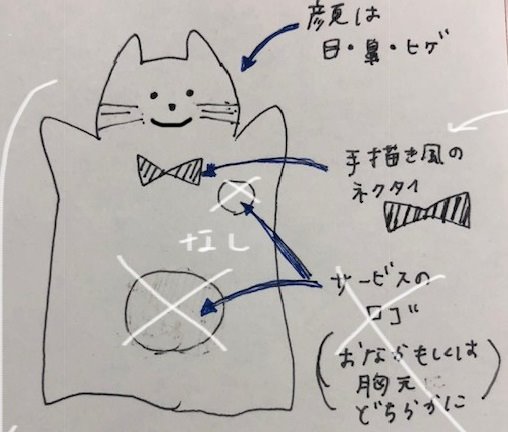 顔は
目・鼻・ヒゲ
手描き風の
ネクタイ
なし
サービスの
ロゴ
(おなかもしくは
胸元に
どちらかに)